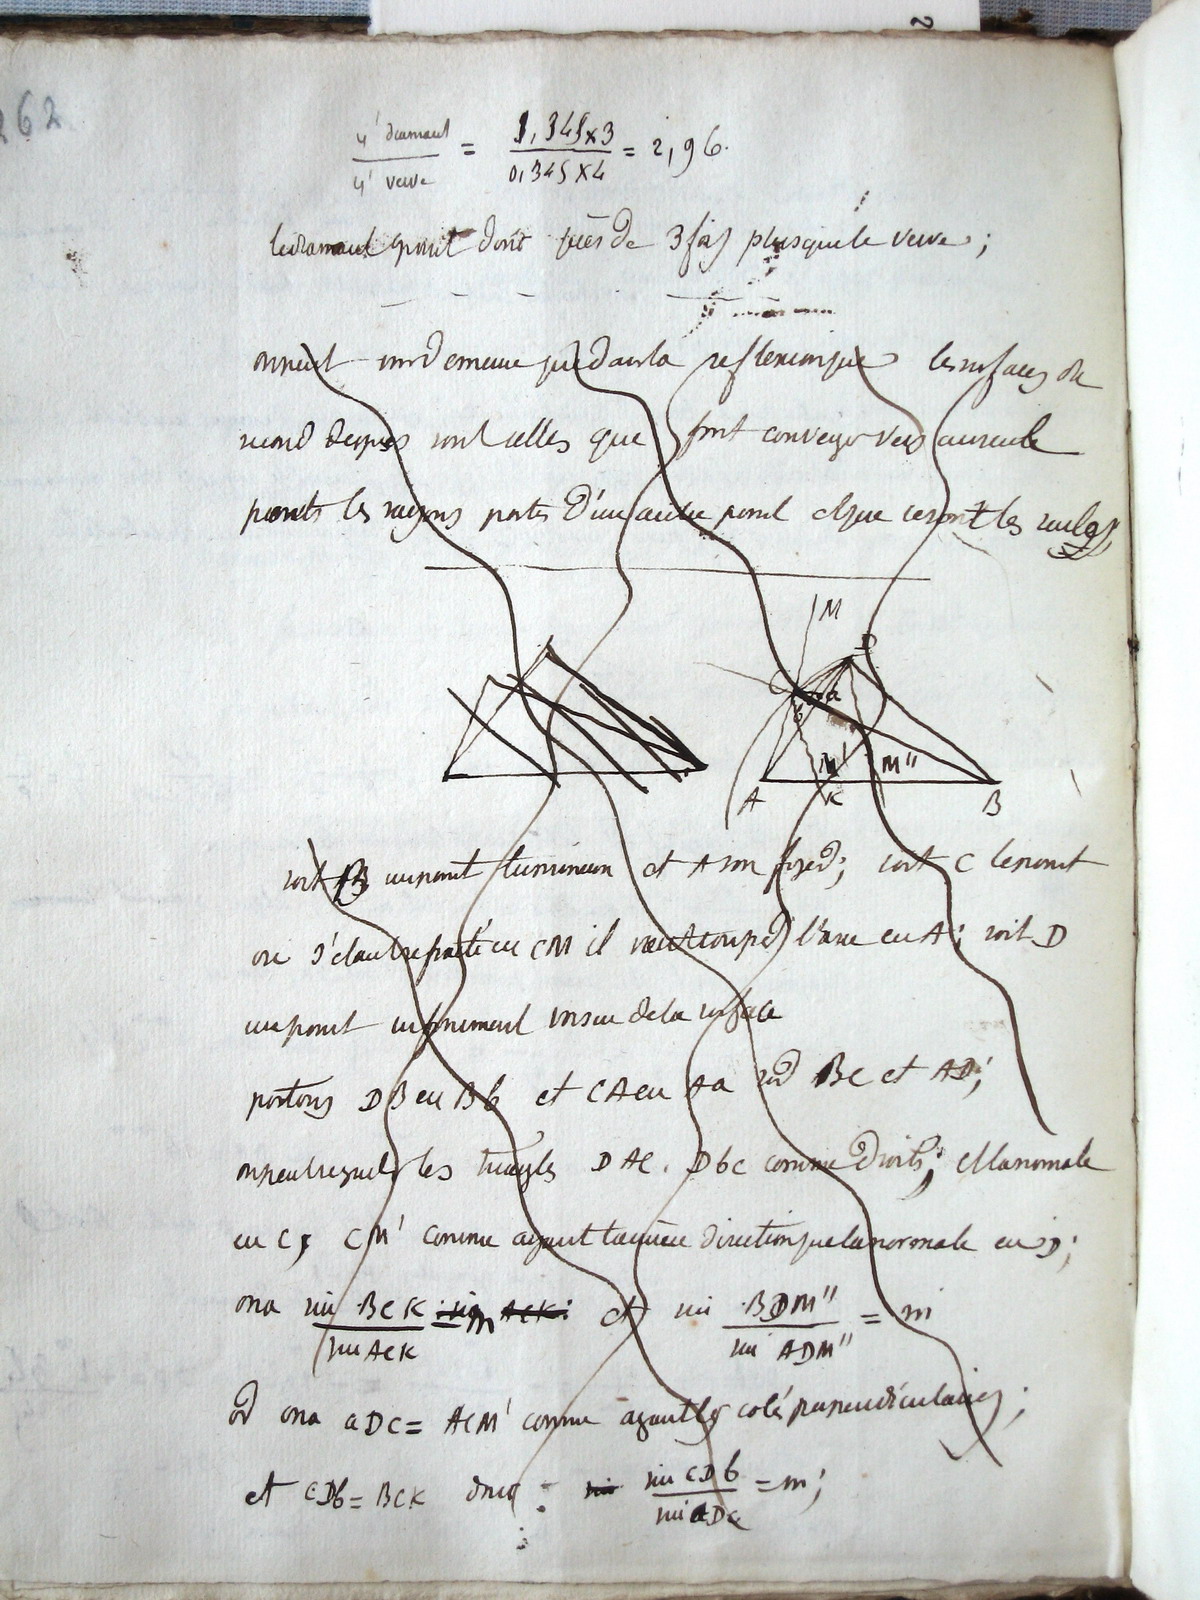 262
4' diamant / 4' verre = 1,345×3 / 0,345×4 = 2,96.
le diamant grossit donc près de 3 fois plus que le verre;
on peut voir de même que dans la reflexion que les surfaces de
second degrés sont celles que font converger vers un seule
points les rayons partis d'un autre point et que ce sont les seules;
M
D
C
a
b
M' M"
A K B
soit B un point lumineux et A son foyer; soit C le point
ou s'étant refracté en CM il vient couper l'axe en A; soit D
un point infiniment voisin de la surface
portons DB en Bb et CA en Aa sur BC et AD;
on peut regarder les triangles DAC. DbC comme droits; et la normale
en C, CM' comme ayant la même direction que la normale en D;
on a sin BCK / sin ACK = m et sin BDM" / sin ADM" = m
or on a aDC = ACM' comme ayant les cotés perpendiculaires;
et CDb = BCK donc : sin CDb / sin aDC = m;